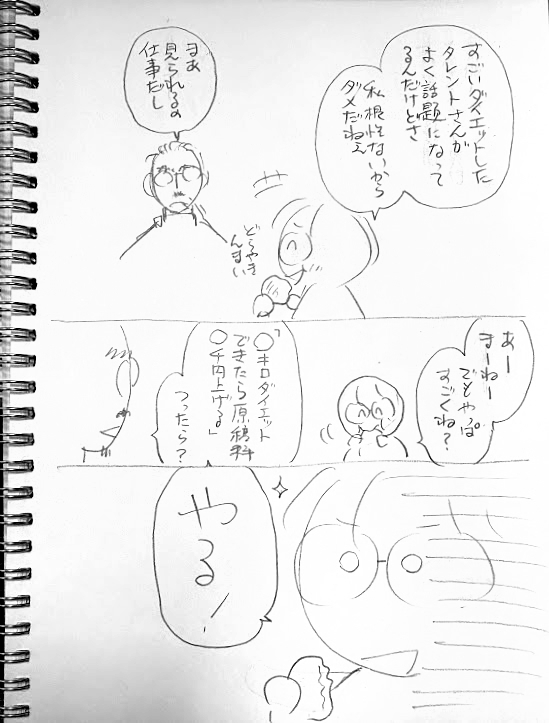 すごいダイエットした
タレントさんが
よく話題になって
るんだけどさ
私根性ないから
ダメだねえ
まあ
見られるの
仕事だし
どらやき
んまい
あー
まーねー
でもやっぱ
すごくね?
「〇キロダイエット
できたら原稿料
〇千円上げる」
つったら?
やる!